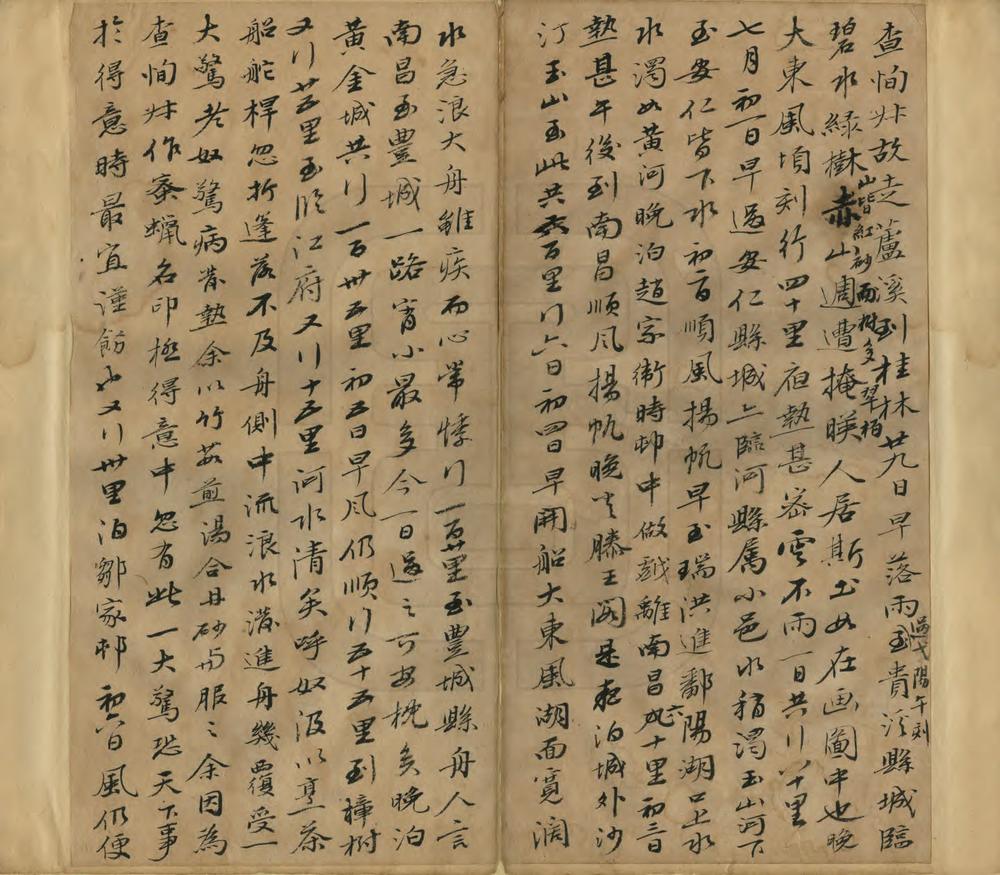 查恂叔故走蘆溪到桂林廿九日早落雨過弋陽午刻至貴溪縣城臨
碧水綠樹赤山山皆紅砂而樹多翠柏週遭掩暎人居斯土如在画圖中也晚
大東風頃刻行四十里宿熱甚密雲不雨一日共行八十里
七月初一日早過安仁縣城亦臨河縣屬小邑水稍濁玉山河下
至安仁皆下水初二日順風揚帆早至瑞洪進鄱陽湖口上水
水濁如黄河晚泊趙家衛時邨中做戲離南昌六十里初三日
熱甚午後到南昌順风揚帆晚过滕王阁是夜泊城外沙
汀玉山至此共六百里行六日初四日早開船大東風湖面寬濶
水急浪大舟雖疾而心常悸行一百廿里至豐城縣舟人言
南昌至豐城一路宵小最多今一日過之可安枕矣晚泊
黄金城共行一百卅五里初五日早风仍順行五十五里到樟树
又行廿五里至临江府又行十五里河水清矣呼奴汲以烹茶
船舵桿忽折篷落不及舟側中流浪水潑進舟幾覆受一
大驚老奴驚病發熱余以竹茹煎湯合丹砂与服之余因為
查恂叔作蜜蠟名印極得意中忽有此一大驚恐天下事
於得意時最宜謹飭也又行卅里泊鄒家邨初六日風仍便